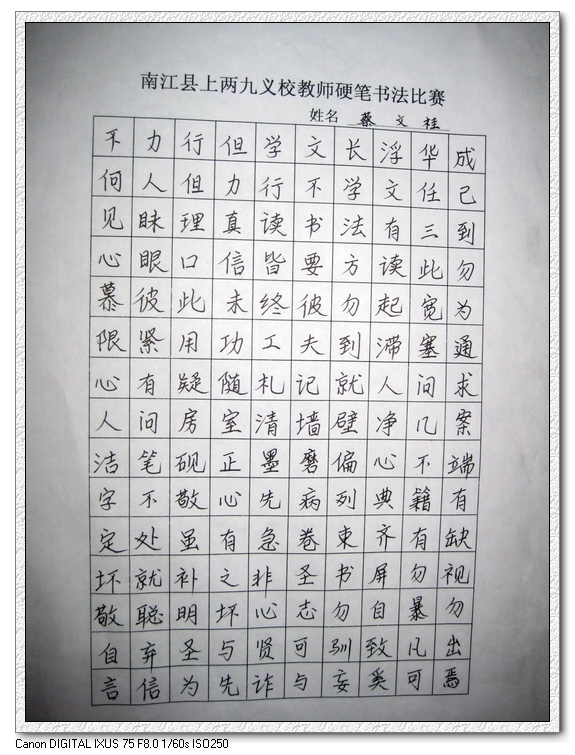 南江县上两九义校教师硬笔书法比赛
姓名 蔡文桂
不力行但学文长浮华成
何人但力行不学文任己
见昧理真读书法有三到
心眼口信皆要方读此勿
慕彼此未终彼勿起宽为
限紧用功工夫到滞塞通
心有疑随札记就人问求
人问房室清墙壁净几案
洁笔砚正墨磨偏心不端
字不敬心先病列典籍有
定处虽有急卷束齐有缺
坏就补之非圣书屏勿视
敬聪明坏心志勿自暴勿
自弃圣与贤可驯致凡出
言信为先诈与妄奚可焉
Canon DIGITAL IXUS 75 F8.0 1/60s ISO250